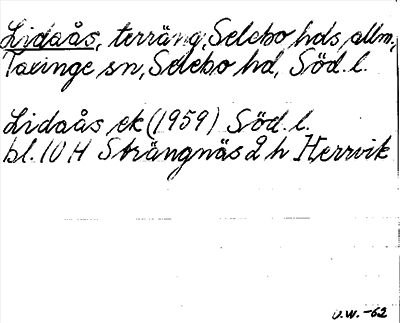 Lidaås, terräng, Selebo hds allm.,
Taxinge sn, Selebo hd, Söd. l.
Lidaås ek (1959) Söd. l.
bl. 10 H Strängnäs 2 h Herrvik
U.W. -62